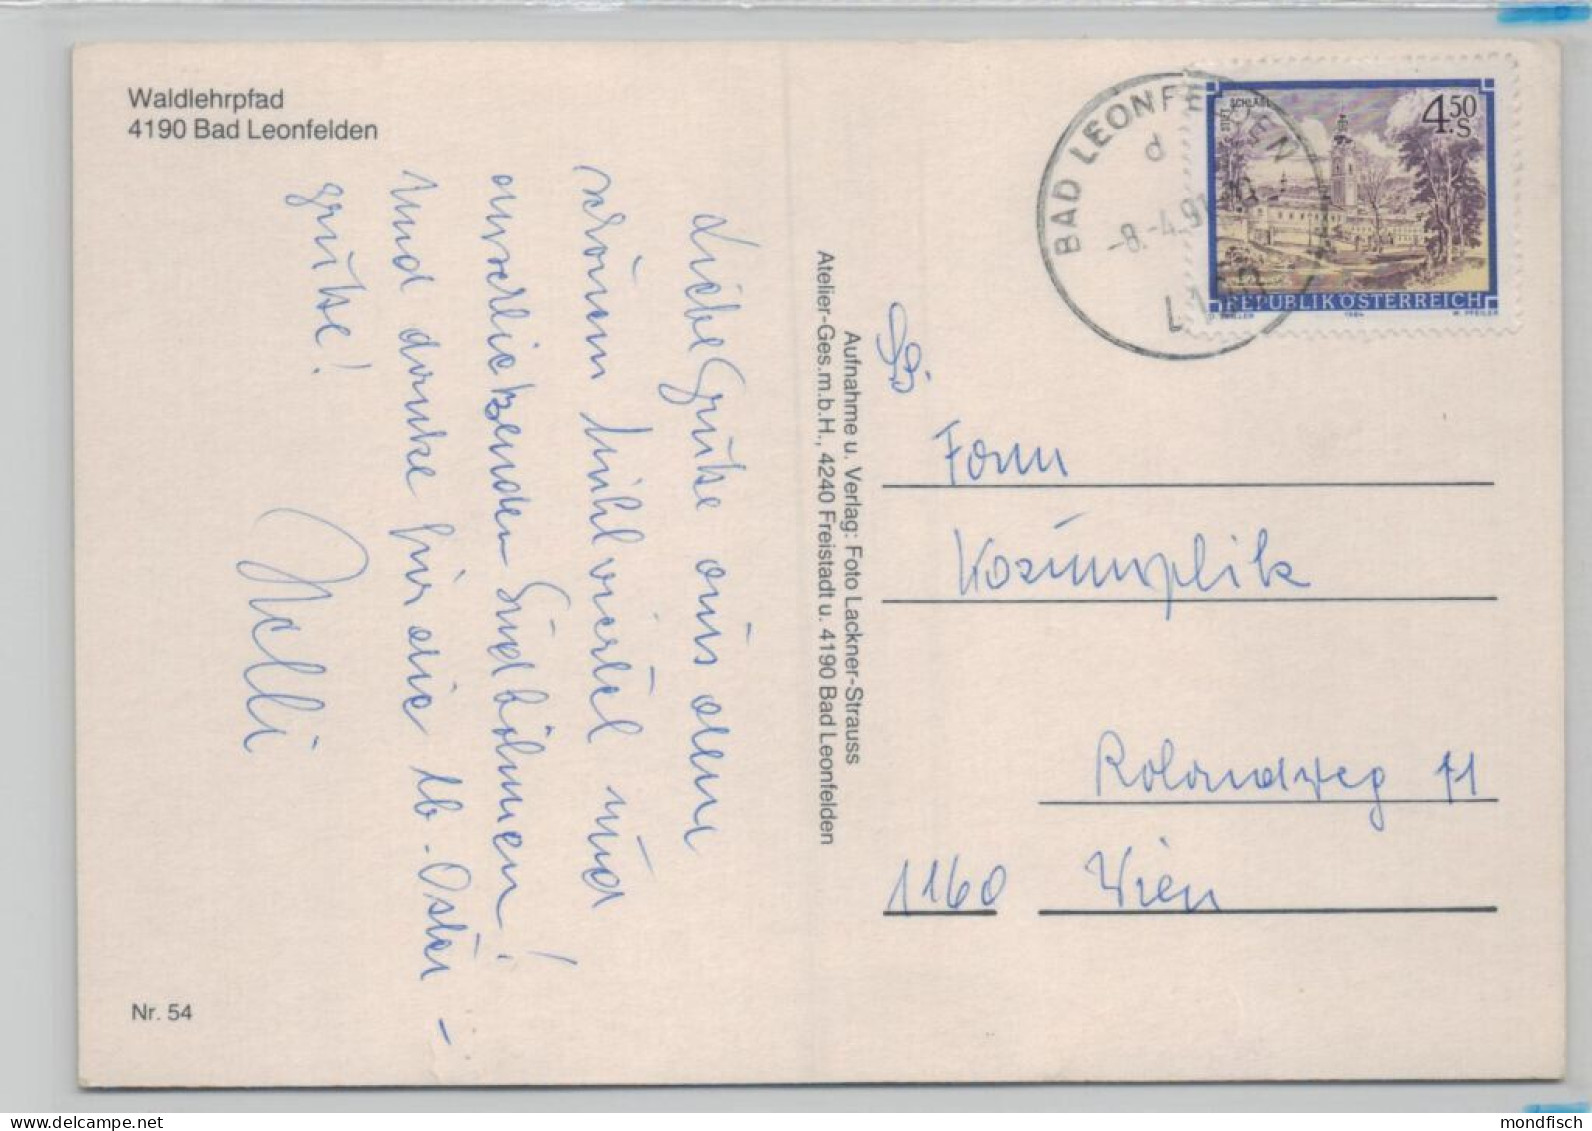 Waldlehrpfad
4190 Bad Leonfelden
Liebe Grüße aus dem
schönen Mühlviertel und
anschließenden Südböhmen!
Und danke für die lb. Oster-
grüße!
Nelli
Nr. 54
Aufnahme u. Verlag: Foto Lackner-Strauss
Atelier-Ges.m.b.H., 4240 Freistadt u. 4190 Bad Leonfelden
BAD LEONFELDEN
d
-8.-4.91
STIFT SCHLÄGL
4.50 S
REPUBLIK ÖSTERREICH
1984
W. PFEILER
Fam
Kozumplik
Rolandweg 11
1160 Wien
mondfisch